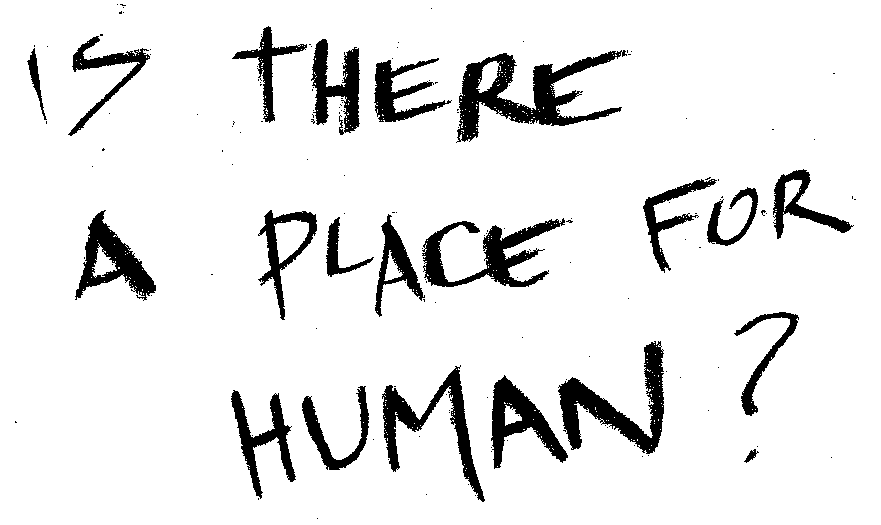 IS THERE
A PLACE FOR
HUMAN?